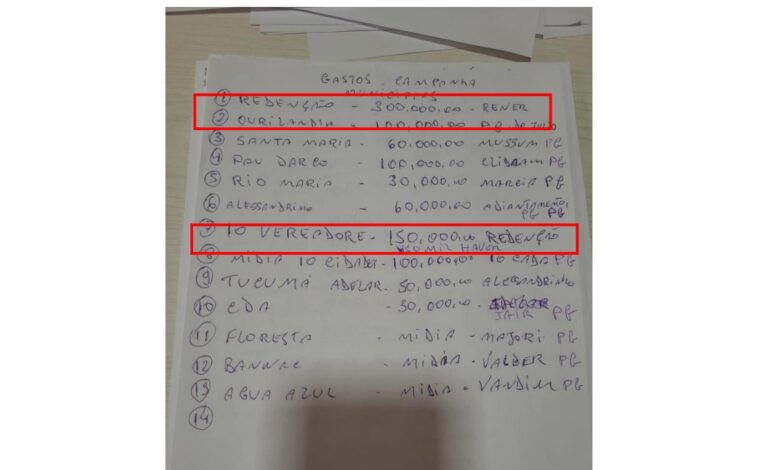 GASTOS - CAMPANHA
MUNICÍPIOS
① REDENÇÃO - 300.000,00 - RENER
② OURILANDIA - 100,000,00 PG DO JULIO
③ SANTA MARIA - 60.000,00 MUSSUM PG
④ PAU DARCO - 100,000,00 PG
⑤ RIO MARIA - 30,000,00 MARCIA PG
⑥ ALESSANDRINHO - 60,000,00 ADIANTAMENTO PG PG
⑦ 10 VEREADORE - 150,000,00 REDENÇÃO
⑧ MÍDIA 10 CIDADES - 100,000,00 10 CADA PG
⑨ TUCUMÁ ADELAR - 50,000,00 ALESSANDRINHO
⑩ CDA - 30,000,00 - JAIR PG
⑪ FLORESTA - MIDIA - MAJORI PG
⑫ BANNAC - MIDIA - VALDER PG
⑬ AGUA AZUL - MIDIA - VANDIM PG
⑭